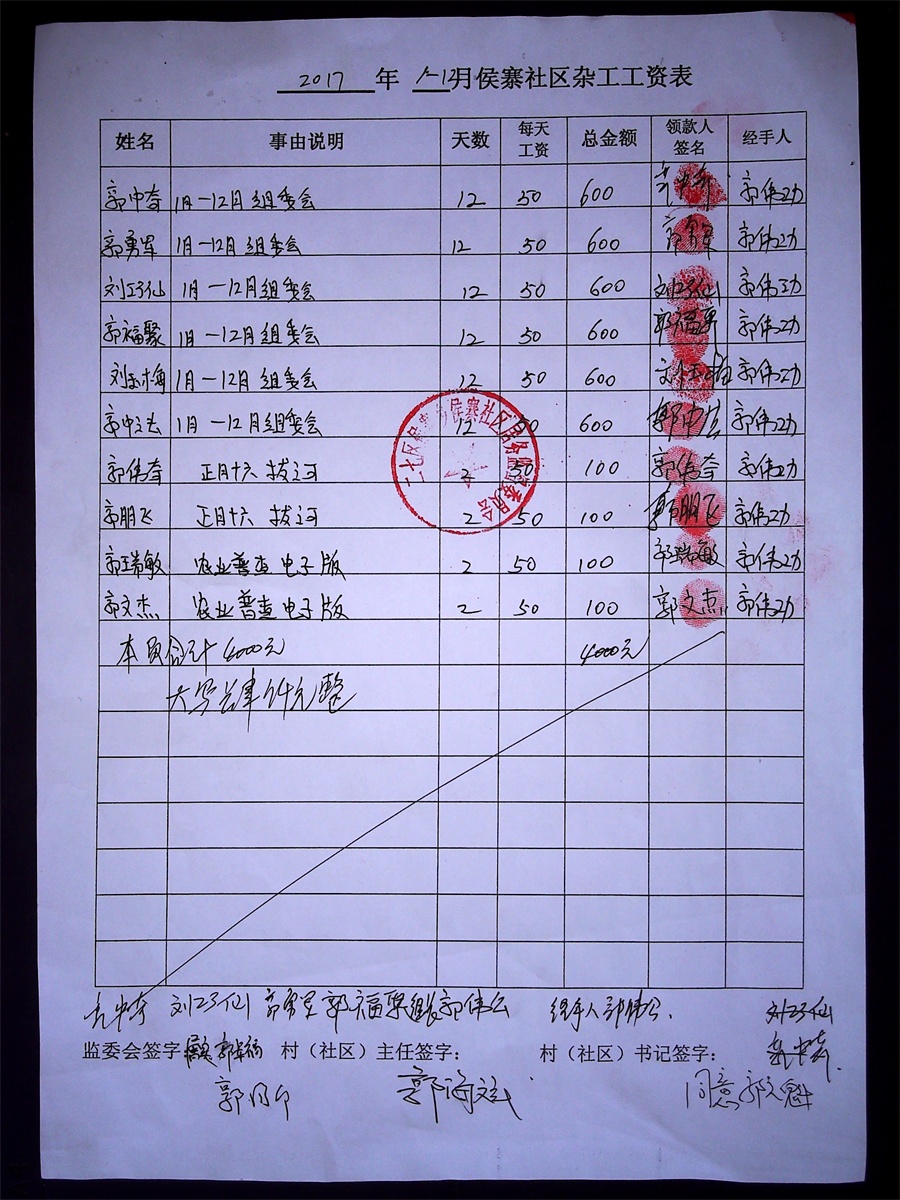 2017 年 1-12月侯寨社区杂工工资表
姓名 事由说明 天数 每天工资 总金额 领款人签名 经手人
郭中奇 1月—12月组委会 12 50 600 郭伟功
郭勇军 1月—12月组委会 12 50 600 郭勇军 郭伟功
刘巧仙 1月—12月组委会 12 50 600 刘巧仙 郭伟功
郭福聚 1月—12月组委会 12 50 600 郭福聚 郭伟功
刘玉梅 1月—12月组委会 12 50 600 刘玉梅 郭伟功
郭中法 1月—12月组委会 12 50 600 郭中法 郭伟功
郭伟奇 正月十六 拔河 2 50 100 郭伟奇 郭伟功
郭朋飞 正月十六 拔河 2 50 100 郭朋飞 郭伟功
郭瑞敏 农业普查电子版 2 50 100 郭瑞敏 郭伟功
郭文杰 农业普查电子版 2 50 100 郭文杰 郭伟功
本页合计4000元 4000元
大写 肆仟元整
刘巧仙 郭勇军 郭福聚 经手人 刘巧仙
监委会签字 村（社区）主任签字： 村（社区）书记签字：
同意 郭文魁